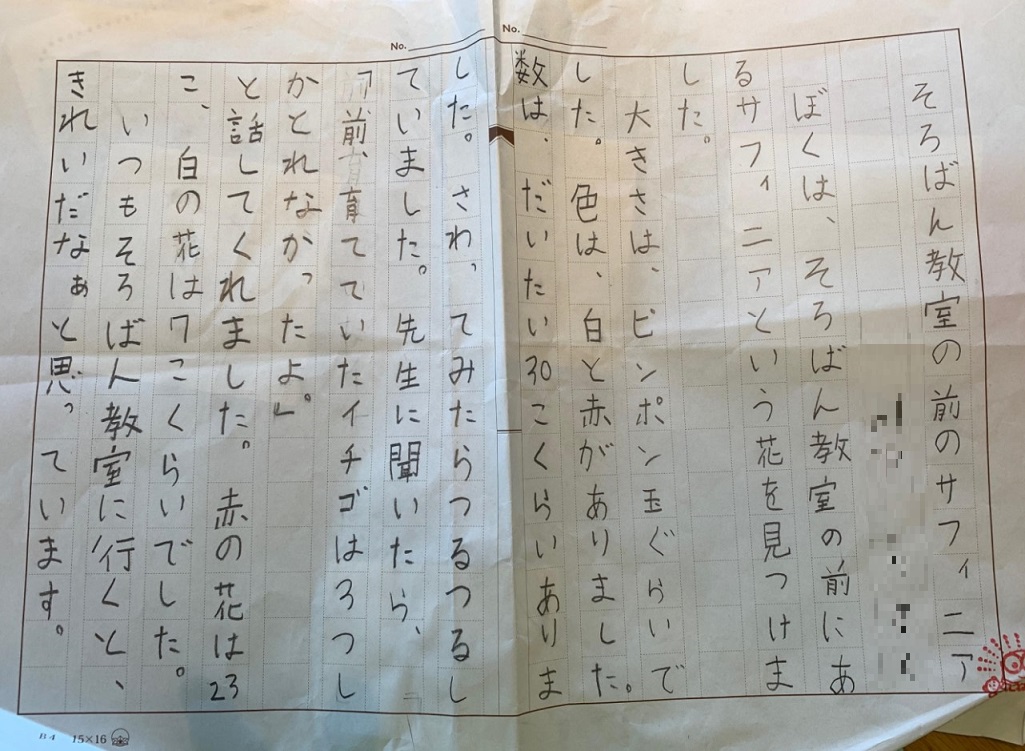 No.
No.
そろばん教室の前のサフィニア
ぼくは、そろばん教室の前にあ
るサフィニアという花を見つけま
した。
大きさは、ピンポン玉ぐらいで
した。色は、白と赤がありました。
数は、だいたい30こくらいありま
した。さわってみたらつるつるし
ていました。先生に聞いたら、
「前、育てていたイチゴは3つし
かとれなかったよ。」
と話してくれました。赤の花は23
こ、白の花は7こくらいでした。
いつもそろばん教室に行くと、
きれいだなぁと思っています。
B4 15×16